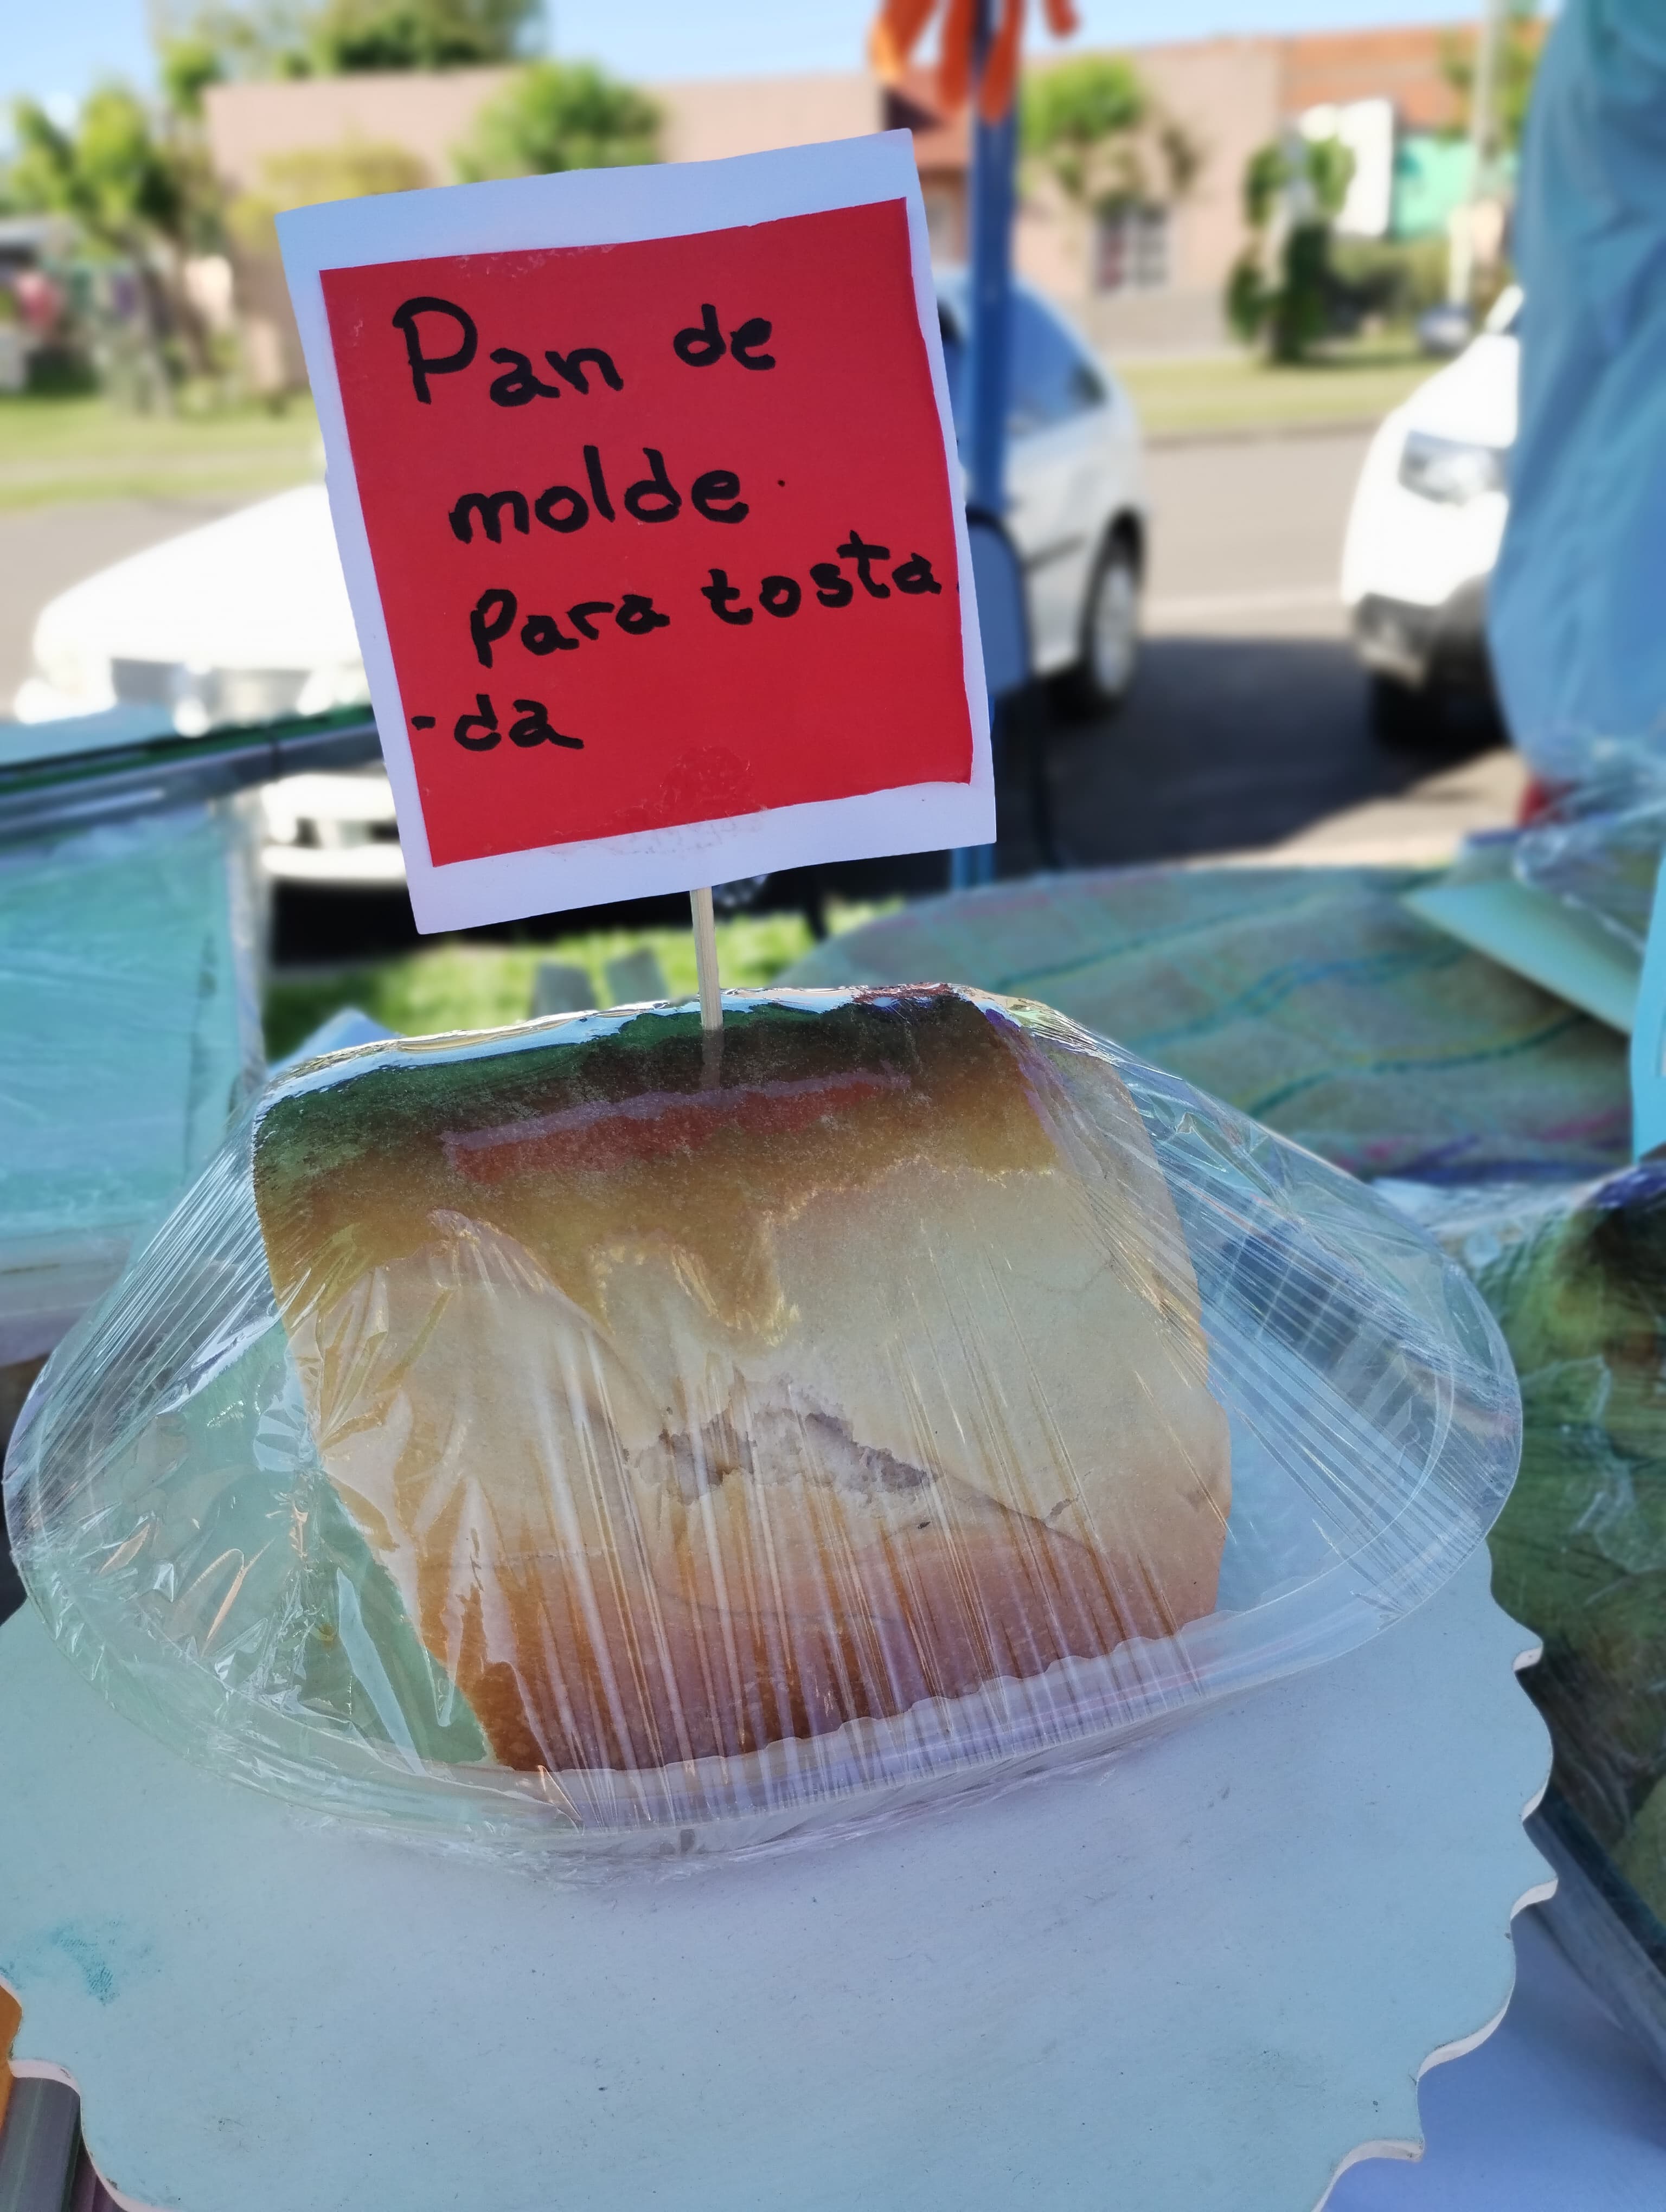 Pan de
molde.
Para tosta
-da